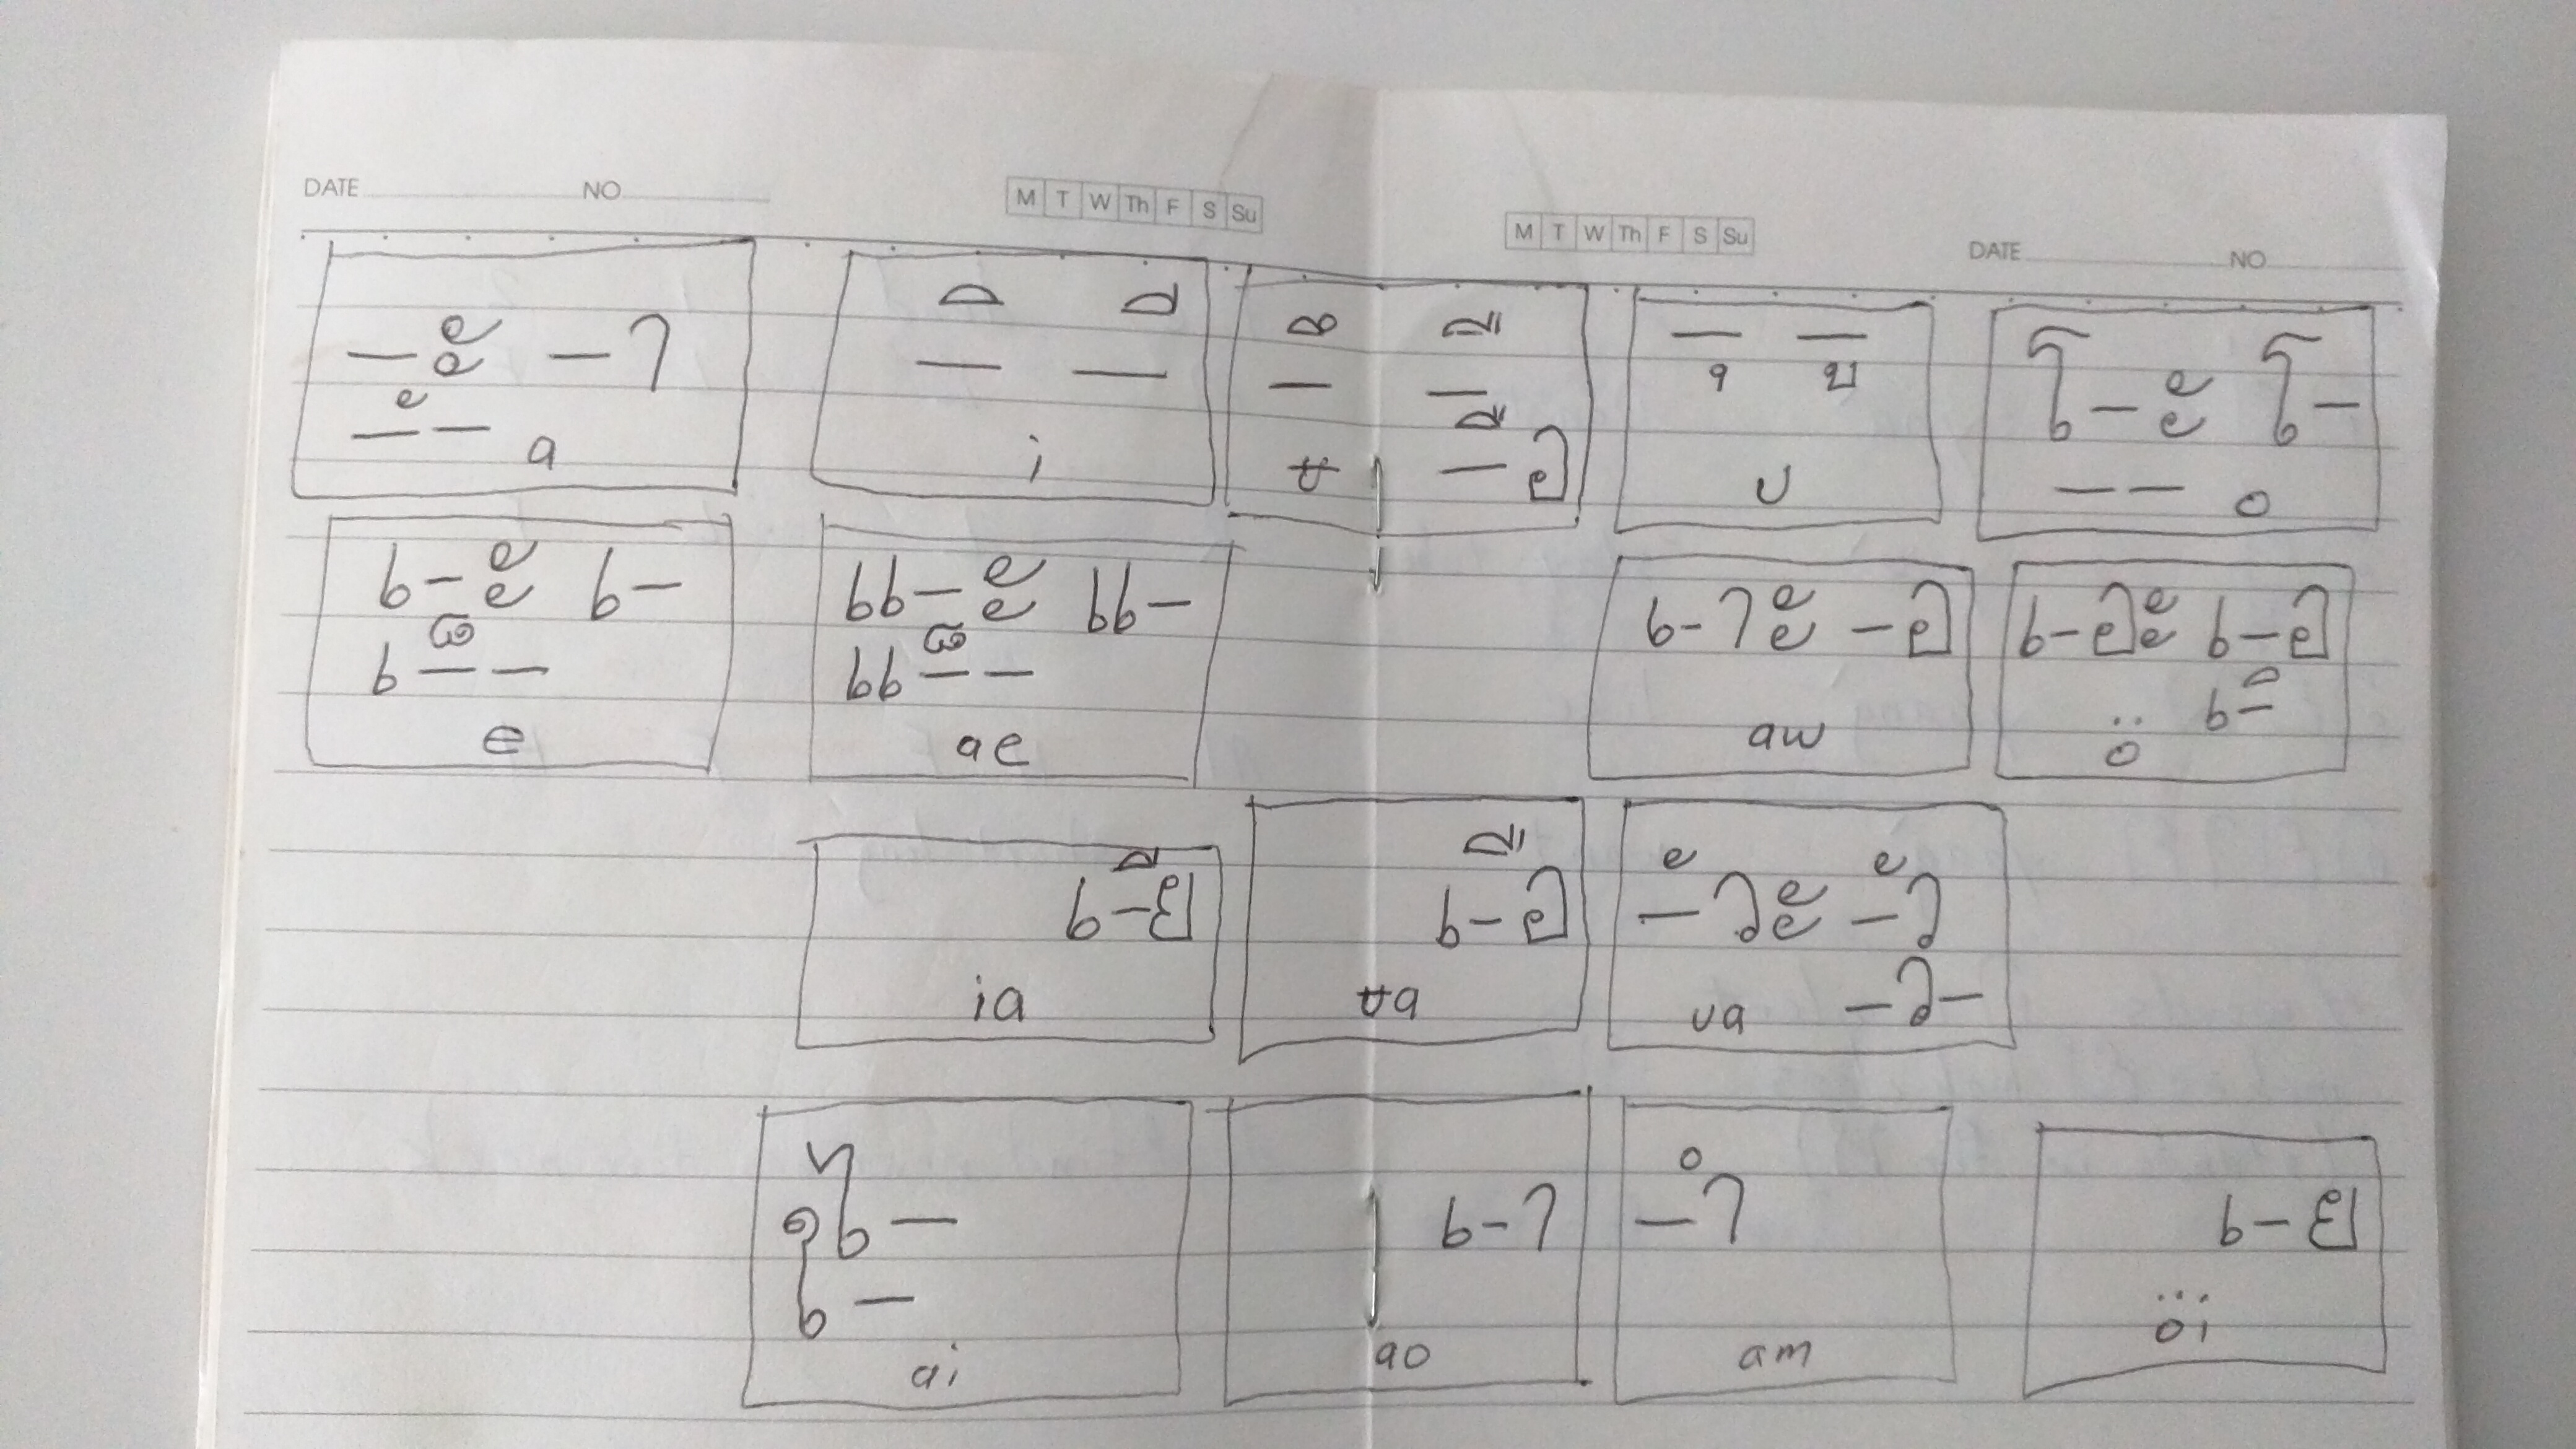 DATE NO M T W Th F S Su
M T W Th F S Su DATE NO
–ะ –า
–ั– a
–ิ –ี
i
–ึ –ื
ʉ –ือ
–ุ –ู
u
โ–ะ โ–
–– o
เ–ะ เ–
เ–็–
e
แ–ะ แ–
แ–็–
ae
เ–าะ –อ
aw
เ–อะ เ–อ
เ–ิ
ö
เ–ีย
ia
เ–ือ
ʉa
–ัวะ –ัว
–ว–
ua
ไ–
ใ–
ai
เ–า
ao
–ำ
am
เ–ย
öi